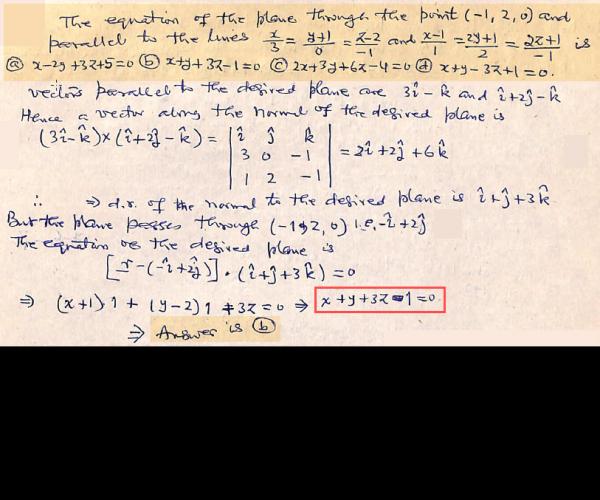 The equation of the plane through the point (-1, 2, 0) and
parallel to the lines x/3 = y+1/0 = z-2/-1 and x-1/1 = 2y+1/2 = 2z+1/-1 is
ⓐ x-2y+3z+5=0 ⓑ x+y+3z-1=0 ⓒ 2x+3y+6z-4=0 ⓓ x+y-3z+1=0.
vectors parallel to the desired plane are 3î-k̂ and î+2ĵ-k̂
Hence a vector along the normal of the desired plane is
(3î-k̂)×(î+2ĵ-k̂) = | î ĵ k̂ | = 2î+2ĵ+6k̂
3 0 -1
1 2 -1
∴ ⇒ d.r. of the normal to the desired plane is î+ĵ+3k̂
But the plane passes through (-1, 2, 0) i.e. -î+2ĵ
The equation of the desired plane is
[r-(-î+2ĵ)] · (î+ĵ+3k̂) = 0
⇒ (x+1)1 + (y-2)1 + 3z = 0 ⇒ x+y+3z-1=0
⇒ Answer is ⓑ